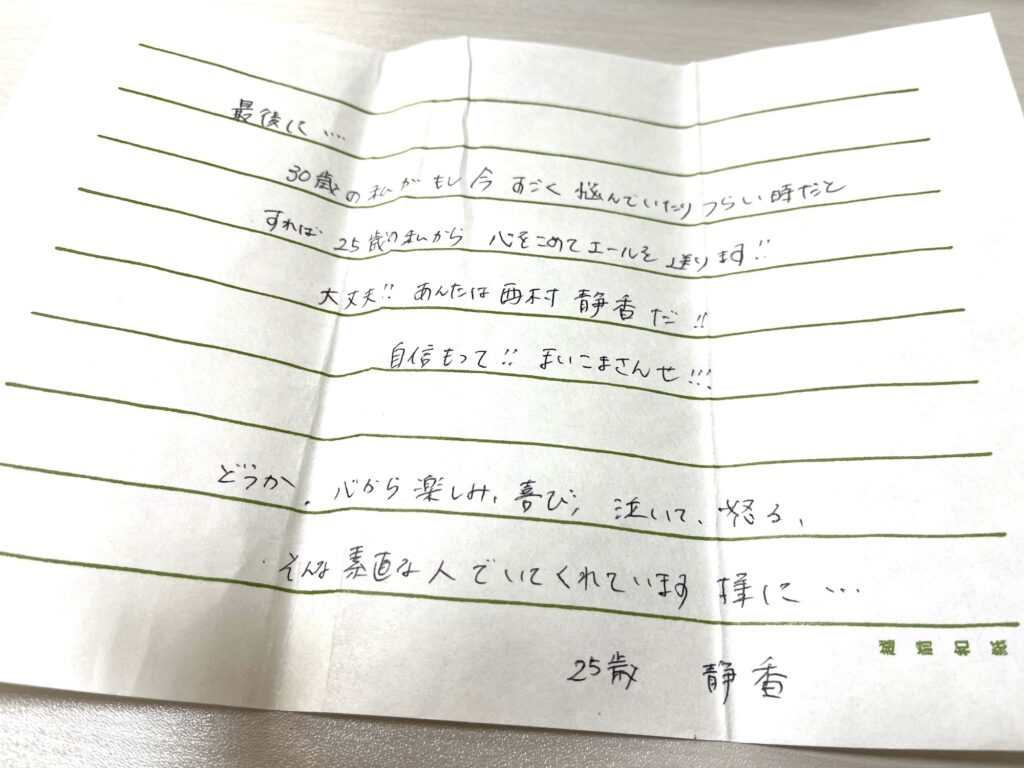 最後に…
30歳の私がもし今すごく悩んでいたりつらい時だと
すれば 25歳の私から 心をこめてエールを送ります!!
大丈夫!! あんたは西村 静香だ!!
自信もって!! まいこまさんせ!!!
どうか、心から楽しみ、喜び、泣いて、怒る、
そんな素直な人でいてくれています様に…
25歳 静香